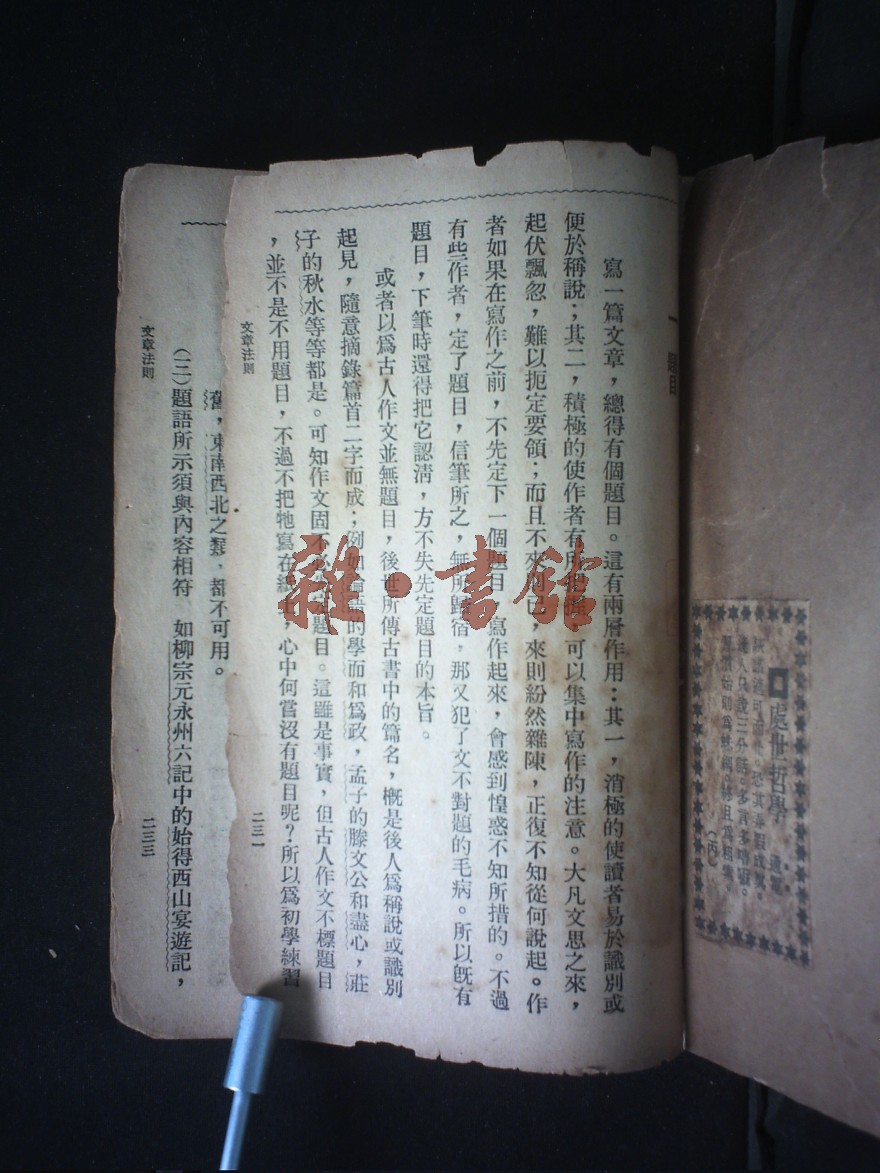 處世哲學
(丙)
一 題目
寫一篇文章，總得有個題目。這有兩層作用：其一，消極的使讀者易於識別或
便於稱說；其二，積極的使作者有所把握，可以集中寫作的注意。大凡文思之來，
起伏飄忽，難以扼定要領；而且不來則已，來則紛然雜陳，正復不知從何說起。作
者如果在寫作之前，不先定下一個題目，寫作起來，會感到惶惑不知所措的。不過
有些作者，定了題目，信筆所之，無所歸宿，那又犯了文不對題的毛病。所以旣有
題目，下筆時還得把它認淸，方不失先定題目的本旨。
或者以爲古人作文並無題目，後世所傳古書中的篇名，槪是後人爲稱說或識別
起見，隨意摘錄篇首二字而成；例如論語的學而和爲政，孟子的滕文公和盡心，莊
子的秋水等等都是。可知作文固不必先定題目。這雖是事實，但古人作文不標題目
，並不是不用題目，不過不把牠寫在紙上，心中何嘗沒有題目呢？所以爲初學練習
文章法則
二三一
舊，東南西北之類，都不可用。
(二)題語所示須與內容相符　如柳宗元永州六記中的始得西山宴遊記，
文章法則
二三三
雜·書館